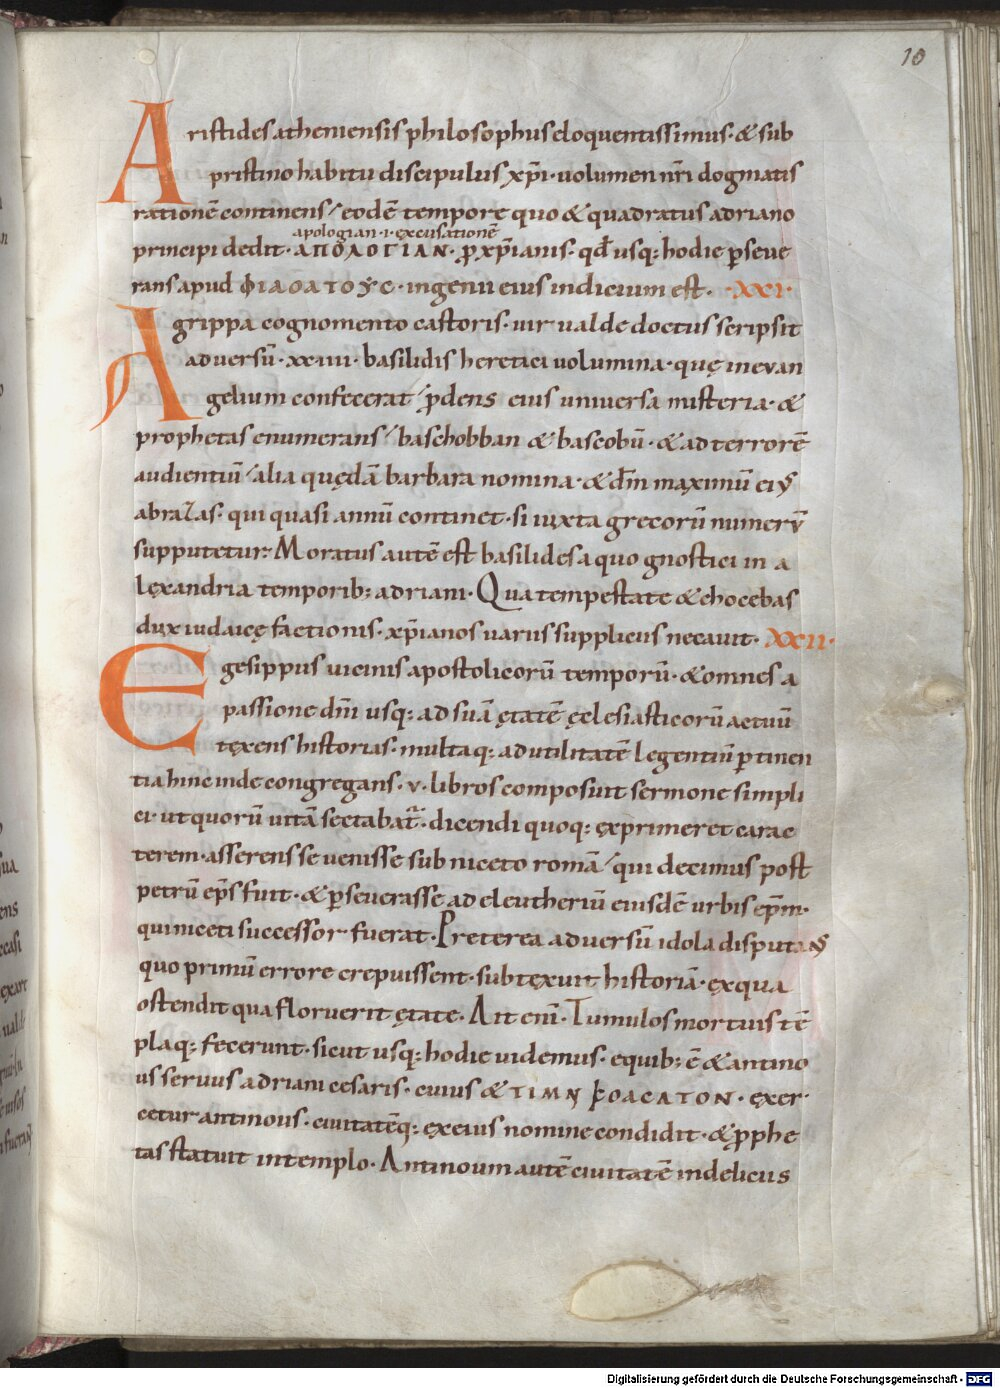 10
Aristides atheniensis philosophus eloquentissimus· & sub
pristino habitu discipulus xp̅i· uolumen nr̅i dogmatis
rationē continens / eodē tempore quo & quadratus adriano
apologian ·i· excusationē
principi dedit· ΑΠΟΛΟΓΙΑΝ· ꝓ xp̅ianis· qđ usq; hodie ꝑseue
rans apud ΦΙΛΟΛΑΤΟΥϹ· ingenii eius indicium est· ·XXI·
Agrippa cognomento castoris· uir ualde doctus scripsit
aduersū· xxiiii· basilidis heretici uolumina· quę in evan
gelium confecerat / ꝓdens eius universa misteria· &
prophetas enumerans / barchobban & barcobū· & ad terrorē
audientiū / alia quędā barbara nomina· & dm̅ maximū eiꝰ
abraZas· qui quasi annū continet· si iuxta grecorū numerū
supputetur· Moratus autē est basilides a quo gnostici in a
lexandria temporib; adriani· Qua tempestate & chocebas
dux iudaicę factionis· xp̅ianos uariis suppliciis necauit· XXII·
Egesippus uicinus apostolicorū temporū· & omnes a
passione dn̅i usq; ad suā ętatē ęclesiasticorū actuū
tęxens historias· multaq; ad utilitatē legentiū ꝑtinen
tia hinc inde congregans· v· libros composuit sermone simpli
ci· ut quorū uitā sectabat̃· dicendi quoq; exprimeret carac
terem· asserens se uenisse sub niceto romā / qui decimus post
petrū ep̅s fuit· & ꝑseuerasse ad eleutheriū eiusdē urbis ep̅m·
qui niceti successor fuerat· Preterea aduersū idola disputans
quo primū errore crepuissent· subtexuit historiā· ex qua
ostendit qua floruerit ętate· Ait eni̅· Tumulos mortuis tē
plaq; fecerunt· sicut usq; hodie uidemus· e quib; ē & antino
us seruus adriani cesaris· cuius & exer
cetur antinous· ciuitatēq; ex eius nomine condidit· & ꝓphe
tas statuit in templo· Antinoum autē ciuitatē in deliciis
Digitalisierung gefördert durch die Deutsche Forschungsgemeinschaft - DFG